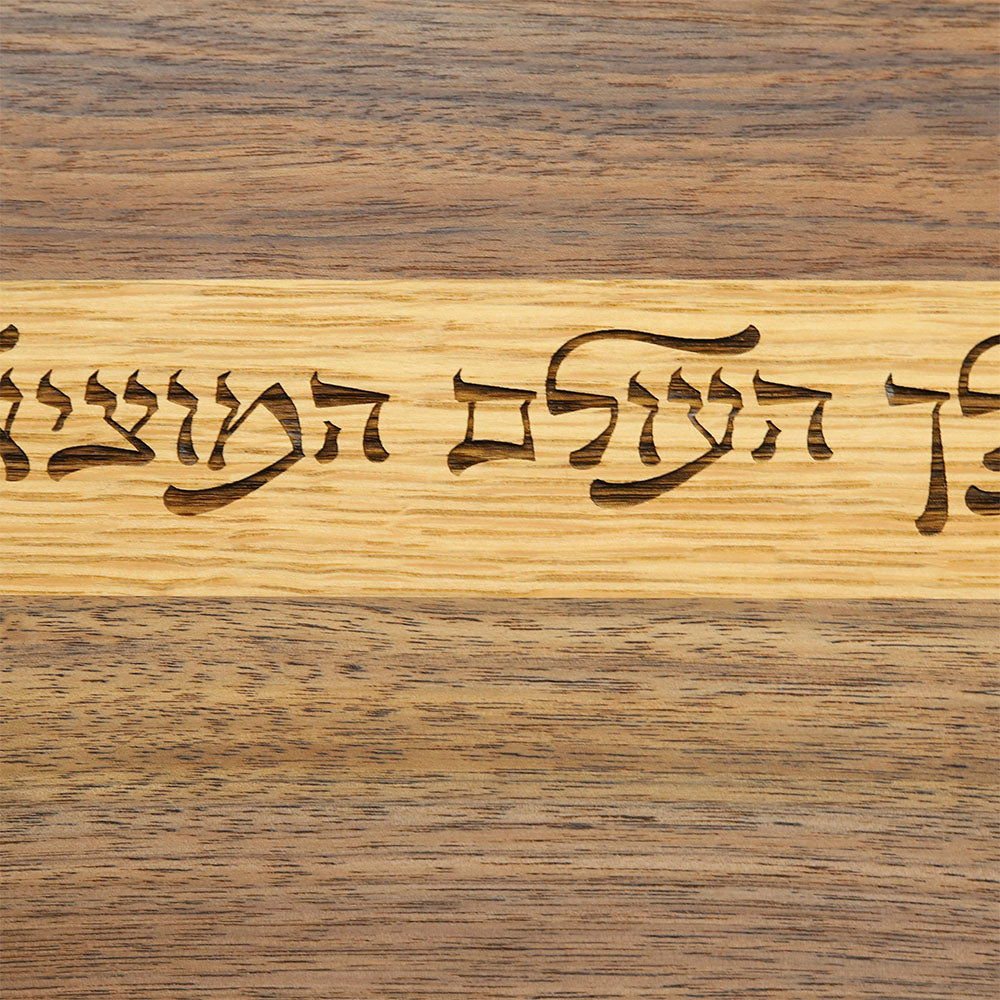 לך העולם המוציא